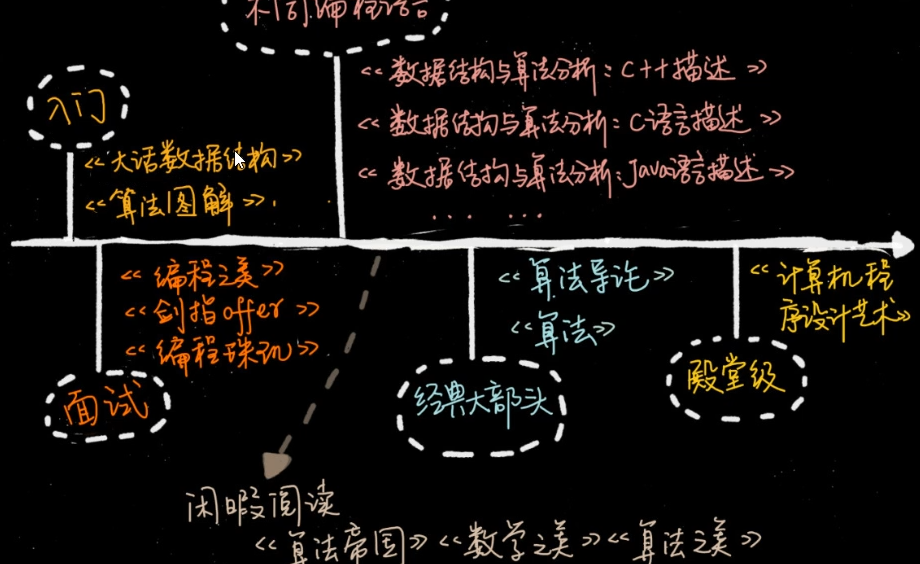 不同编程语言
《数据结构与算法分析:C++描述》
《数据结构与算法分析:C语言描述》
《数据结构与算法分析:Java语言描述》
... ...
入门
《大话数据结构》
《算法图解》.
《编程之美》
《剑指offer》
《编程珠玑》
面试
《算法导论》
《算法》
经典大部头
《计算机程
序设计艺术》
殿堂级
闲暇阅读
《算法帝国》《数学之美》《算法之美》